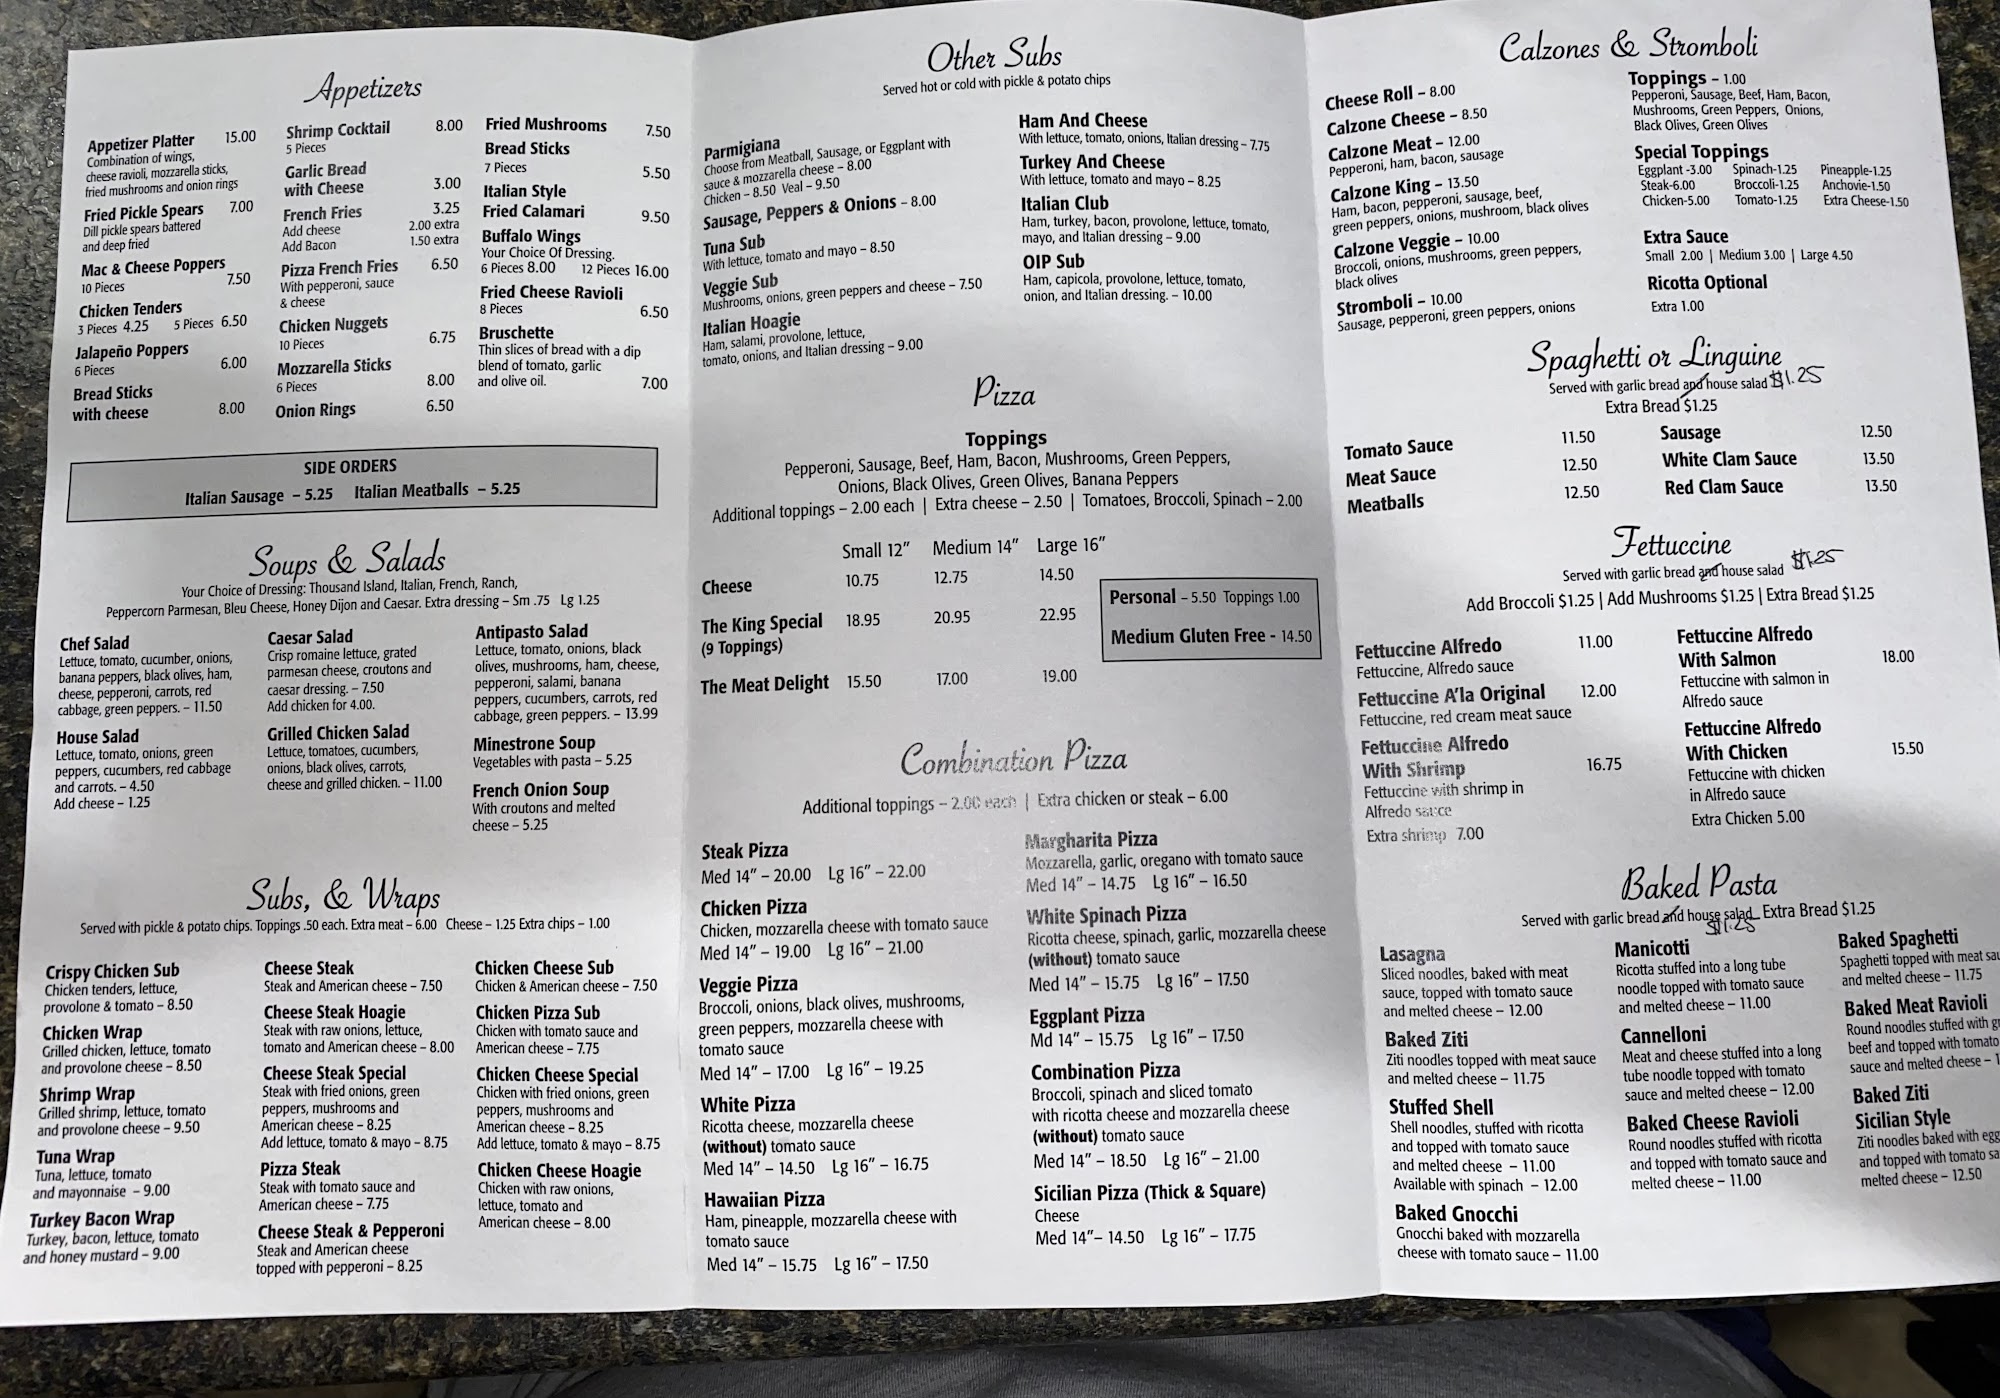 Appetizers
Appetizer Platter 15.00
Combination of wings,
cheese ravioli, mozzarella sticks,
fried mushrooms and onion rings
Fried Pickle Spears 7.00
Dill pickle spears battered
and deep fried
Mac & Cheese Poppers
10 Pieces 7.50
Chicken Tenders
3 Pieces 4.25 5 Pieces 6.50
Jalapeño Poppers
6 Pieces 6.00
Bread Sticks
with cheese 8.00
Shrimp Cocktail 8.00
5 Pieces
Garlic Bread
with Cheese 3.00
French Fries 3.25
Add cheese 2.00 extra
Add Bacon 1.50 extra
Pizza French Fries 6.50
With pepperoni, sauce
& cheese
Chicken Nuggets
10 Pieces 6.75
Mozzarella Sticks
6 Pieces 8.00
Onion Rings 6.50
Fried Mushrooms 7.50
Bread Sticks
7 Pieces 5.50
Italian Style
Fried Calamari 9.50
Buffalo Wings
Your Choice Of Dressing.
6 Pieces 8.00 12 Pieces 16.00
Fried Cheese Ravioli
8 Pieces 6.50
Bruschette
Thin slices of bread with a dip
blend of tomato, garlic
and olive oil. 7.00
SIDE ORDERS
Italian Sausage – 5.25 Italian Meatballs – 5.25
Soups & Salads
Your Choice of Dressing: Thousand Island, Italian, French, Ranch,
Peppercorn Parmesan, Bleu Cheese, Honey Dijon and Caesar. Extra dressing – Sm .75 Lg 1.25
Chef Salad
Lettuce, tomato, cucumber, onions,
banana peppers, black olives, ham,
cheese, pepperoni, carrots, red
cabbage, green peppers. – 11.50
House Salad
Lettuce, tomato, onions, green
peppers, cucumbers, red cabbage
and carrots. – 4.50
Add cheese – 1.25
Caesar Salad
Crisp romaine lettuce, grated
parmesan cheese, croutons and
caesar dressing. – 7.50
Add chicken for 4.00.
Grilled Chicken Salad
Lettuce, tomatoes, cucumbers,
onions, black olives, carrots,
cheese and grilled chicken. – 11.00
Antipasto Salad
Lettuce, tomato, onions, black
olives, mushrooms, ham, cheese,
pepperoni, salami, banana
peppers, cucumbers, carrots, red
cabbage, green peppers. – 13.99
Minestrone Soup
Vegetables with pasta – 5.25
French Onion Soup
With croutons and melted
cheese – 5.25
Subs, & Wraps
Served with pickle & potato chips. Toppings .50 each. Extra meat – 6.00 Cheese – 1.25 Extra chips – 1.00
Crispy Chicken Sub
Chicken tenders, lettuce,
provolone & tomato – 8.50
Chicken Wrap
Grilled chicken, lettuce, tomato
and provolone cheese – 8.50
Shrimp Wrap
Grilled shrimp, lettuce, tomato
and provolone cheese – 9.50
Tuna Wrap
Tuna, lettuce, tomato
and mayonnaise – 9.00
Turkey Bacon Wrap
Turkey, bacon, lettuce, tomato
and honey mustard – 9.00
Cheese Steak
Steak and American cheese – 7.50
Cheese Steak Hoagie
Steak with raw onions, lettuce,
tomato and American cheese – 8.00
Cheese Steak Special
Steak with fried onions, green
peppers, mushrooms and
American cheese – 8.25
Add lettuce, tomato & mayo – 8.75
Pizza Steak
Steak with tomato sauce and
American cheese – 7.75
Cheese Steak & Pepperoni
Steak and American cheese
topped with pepperoni – 8.25
Chicken Cheese Sub
Chicken & American cheese – 7.50
Chicken Pizza Sub
Chicken with tomato sauce and
American cheese – 7.75
Chicken Cheese Special
Chicken with fried onions, green
peppers, mushrooms and
American cheese – 8.25
Add lettuce, tomato & mayo – 8.75
Chicken Cheese Hoagie
Chicken with raw onions,
lettuce, tomato and
American cheese – 8.00
Other Subs
Served hot or cold with pickle & potato chips
Parmigiana
Choose from Meatball, Sausage, or Eggplant with
sauce & mozzarella cheese – 8.00
Chicken – 8.50 Veal – 9.50
Sausage, Peppers & Onions – 8.00
Tuna Sub
With lettuce, tomato and mayo – 8.50
Veggie Sub
Mushrooms, onions, green peppers and cheese – 7.50
Italian Hoagie
Ham, salami, provolone, lettuce,
tomato, onions, and Italian dressing – 9.00
Ham And Cheese
With lettuce, tomato, onions, Italian dressing – 7.75
Turkey And Cheese
With lettuce, tomato and mayo – 8.25
Italian Club
Ham, turkey, bacon, provolone, lettuce, tomato,
mayo, and Italian dressing – 9.00
OIP Sub
Ham, capicola, provolone, lettuce, tomato,
onion, and Italian dressing. – 10.00
Pizza
Toppings
Pepperoni, Sausage, Beef, Ham, Bacon, Mushrooms, Green Peppers,
Onions, Black Olives, Green Olives, Banana Peppers
Additional toppings – 2.00 each | Extra cheese – 2.50 | Tomatoes, Broccoli, Spinach – 2.00
Small 12" Medium 14" Large 16"
Cheese 10.75 12.75 14.50
The King Special 18.95 20.95 22.95
(9 Toppings)
The Meat Delight 15.50 17.00 19.00
Personal – 5.50 Toppings 1.00
Medium Gluten Free - 14.50
Combination Pizza
Additional toppings – 2.00 each | Extra chicken or steak – 6.00
Steak Pizza
Med 14" – 20.00 Lg 16" – 22.00
Chicken Pizza
Chicken, mozzarella cheese with tomato sauce
Med 14" – 19.00 Lg 16" – 21.00
Veggie Pizza
Broccoli, onions, black olives, mushrooms,
green peppers, mozzarella cheese with
tomato sauce
Med 14" – 17.00 Lg 16" – 19.25
White Pizza
Ricotta cheese, mozzarella cheese
(without) tomato sauce
Med 14" – 14.50 Lg 16" – 16.75
Hawaiian Pizza
Ham, pineapple, mozzarella cheese with
tomato sauce
Med 14" – 15.75 Lg 16" – 17.50
Margharita Pizza
Mozzarella, garlic, oregano with tomato sauce
Med 14" – 14.75 Lg 16" – 16.50
White Spinach Pizza
Ricotta cheese, spinach, garlic, mozzarella cheese
(without) tomato sauce
Med 14" – 15.75 Lg 16" – 17.50
Eggplant Pizza
Md 14" – 15.75 Lg 16" – 17.50
Combination Pizza
Broccoli, spinach and sliced tomato
with ricotta cheese and mozzarella cheese
(without) tomato sauce
Med 14" – 18.50 Lg 16" – 21.00
Sicilian Pizza (Thick & Square)
Cheese
Med 14"– 14.50 Lg 16" – 17.75
Calzones & Stromboli
Cheese Roll – 8.00
Calzone Cheese – 8.50
Calzone Meat – 12.00
Pepperoni, ham, bacon, sausage
Calzone King – 13.50
Ham, bacon, pepperoni, sausage, beef,
green peppers, onions, mushroom, black olives
Calzone Veggie – 10.00
Broccoli, onions, mushrooms, green peppers,
black olives
Stromboli – 10.00
Sausage, pepperoni, green peppers, onions
Toppings – 1.00
Pepperoni, Sausage, Beef, Ham, Bacon,
Mushrooms, Green Peppers, Onions,
Black Olives, Green Olives
Special Toppings
Eggplant -3.00 Spinach-1.25 Pineapple-1.25
Steak-6.00 Broccoli-1.25 Anchovie-1.50
Chicken-5.00 Tomato-1.25 Extra Cheese-1.50
Extra Sauce
Small 2.00 | Medium 3.00 | Large 4.50
Ricotta Optional
Extra 1.00
Spaghetti or Linguine
Served with garlic bread and house salad $1.25
Extra Bread $1.25
Tomato Sauce 11.50
Meat Sauce 12.50
Meatballs 12.50
Sausage 12.50
White Clam Sauce 13.50
Red Clam Sauce 13.50
Fettuccine
Served with garlic bread and house salad $1.25
Add Broccoli $1.25 | Add Mushrooms $1.25 | Extra Bread $1.25
Fettuccine Alfredo 11.00
Fettuccine, Alfredo sauce
Fettuccine A'la Original 12.00
Fettuccine, red cream meat sauce
Fettuccine Alfredo
With Shrimp 16.75
Fettuccine with shrimp in
Alfredo sauce
Extra shrimp 7.00
Fettuccine Alfredo
With Salmon 18.00
Fettuccine with salmon in
Alfredo sauce
Fettuccine Alfredo
With Chicken 15.50
Fettuccine with chicken
in Alfredo sauce
Extra Chicken 5.00
Baked Pasta
Served with garlic bread and house salad Extra Bread $1.25
$1.25
Lasagna
Sliced noodles, baked with meat
sauce, topped with tomato sauce
and melted cheese – 12.00
Baked Ziti
Ziti noodles topped with meat sauce
and melted cheese – 11.75
Stuffed Shell
Shell noodles, stuffed with ricotta
and topped with tomato sauce
and melted cheese – 11.00
Available with spinach – 12.00
Baked Gnocchi
Gnocchi baked with mozzarella
cheese with tomato sauce – 11.00
Manicotti
Ricotta stuffed into a long tube
noodle topped with tomato sauce
and melted cheese – 11.00
Cannelloni
Meat and cheese stuffed into a long
tube noodle topped with tomato
sauce and melted cheese – 12.00
Baked Cheese Ravioli
Round noodles stuffed with ricotta
and topped with tomato sauce and
melted cheese – 11.00
Baked Spaghetti
Spaghetti topped with meat
and melted cheese – 11.75
Baked Meat Ravioli
Round noodles stuffed with
beef and topped with tomato
sauce and melted cheese –
Baked Ziti
Sicilian Style
Ziti noodles baked with
and topped with tomato
melted cheese – 12.50